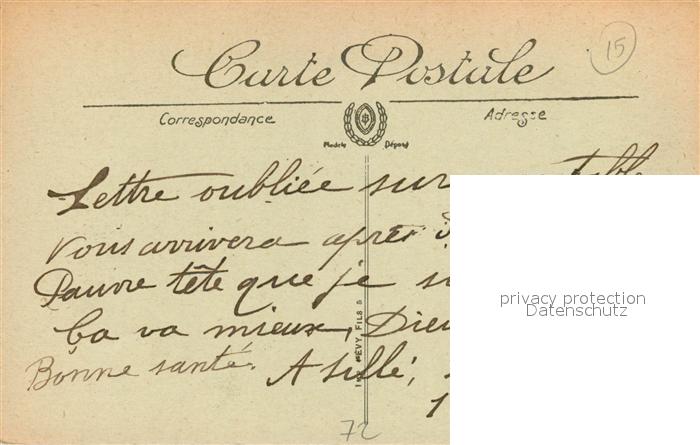 15
Carte Postale
Correspondance
Adresse
Modèle Déposé
Lettre oubliée sur table
Vous arrivera après
Pauvre tête que je
Ça va mieux, Dieu
Bonne santé. A Sillé,
1
LÉVY, FILS &
72
privacy protection
Datenschutz